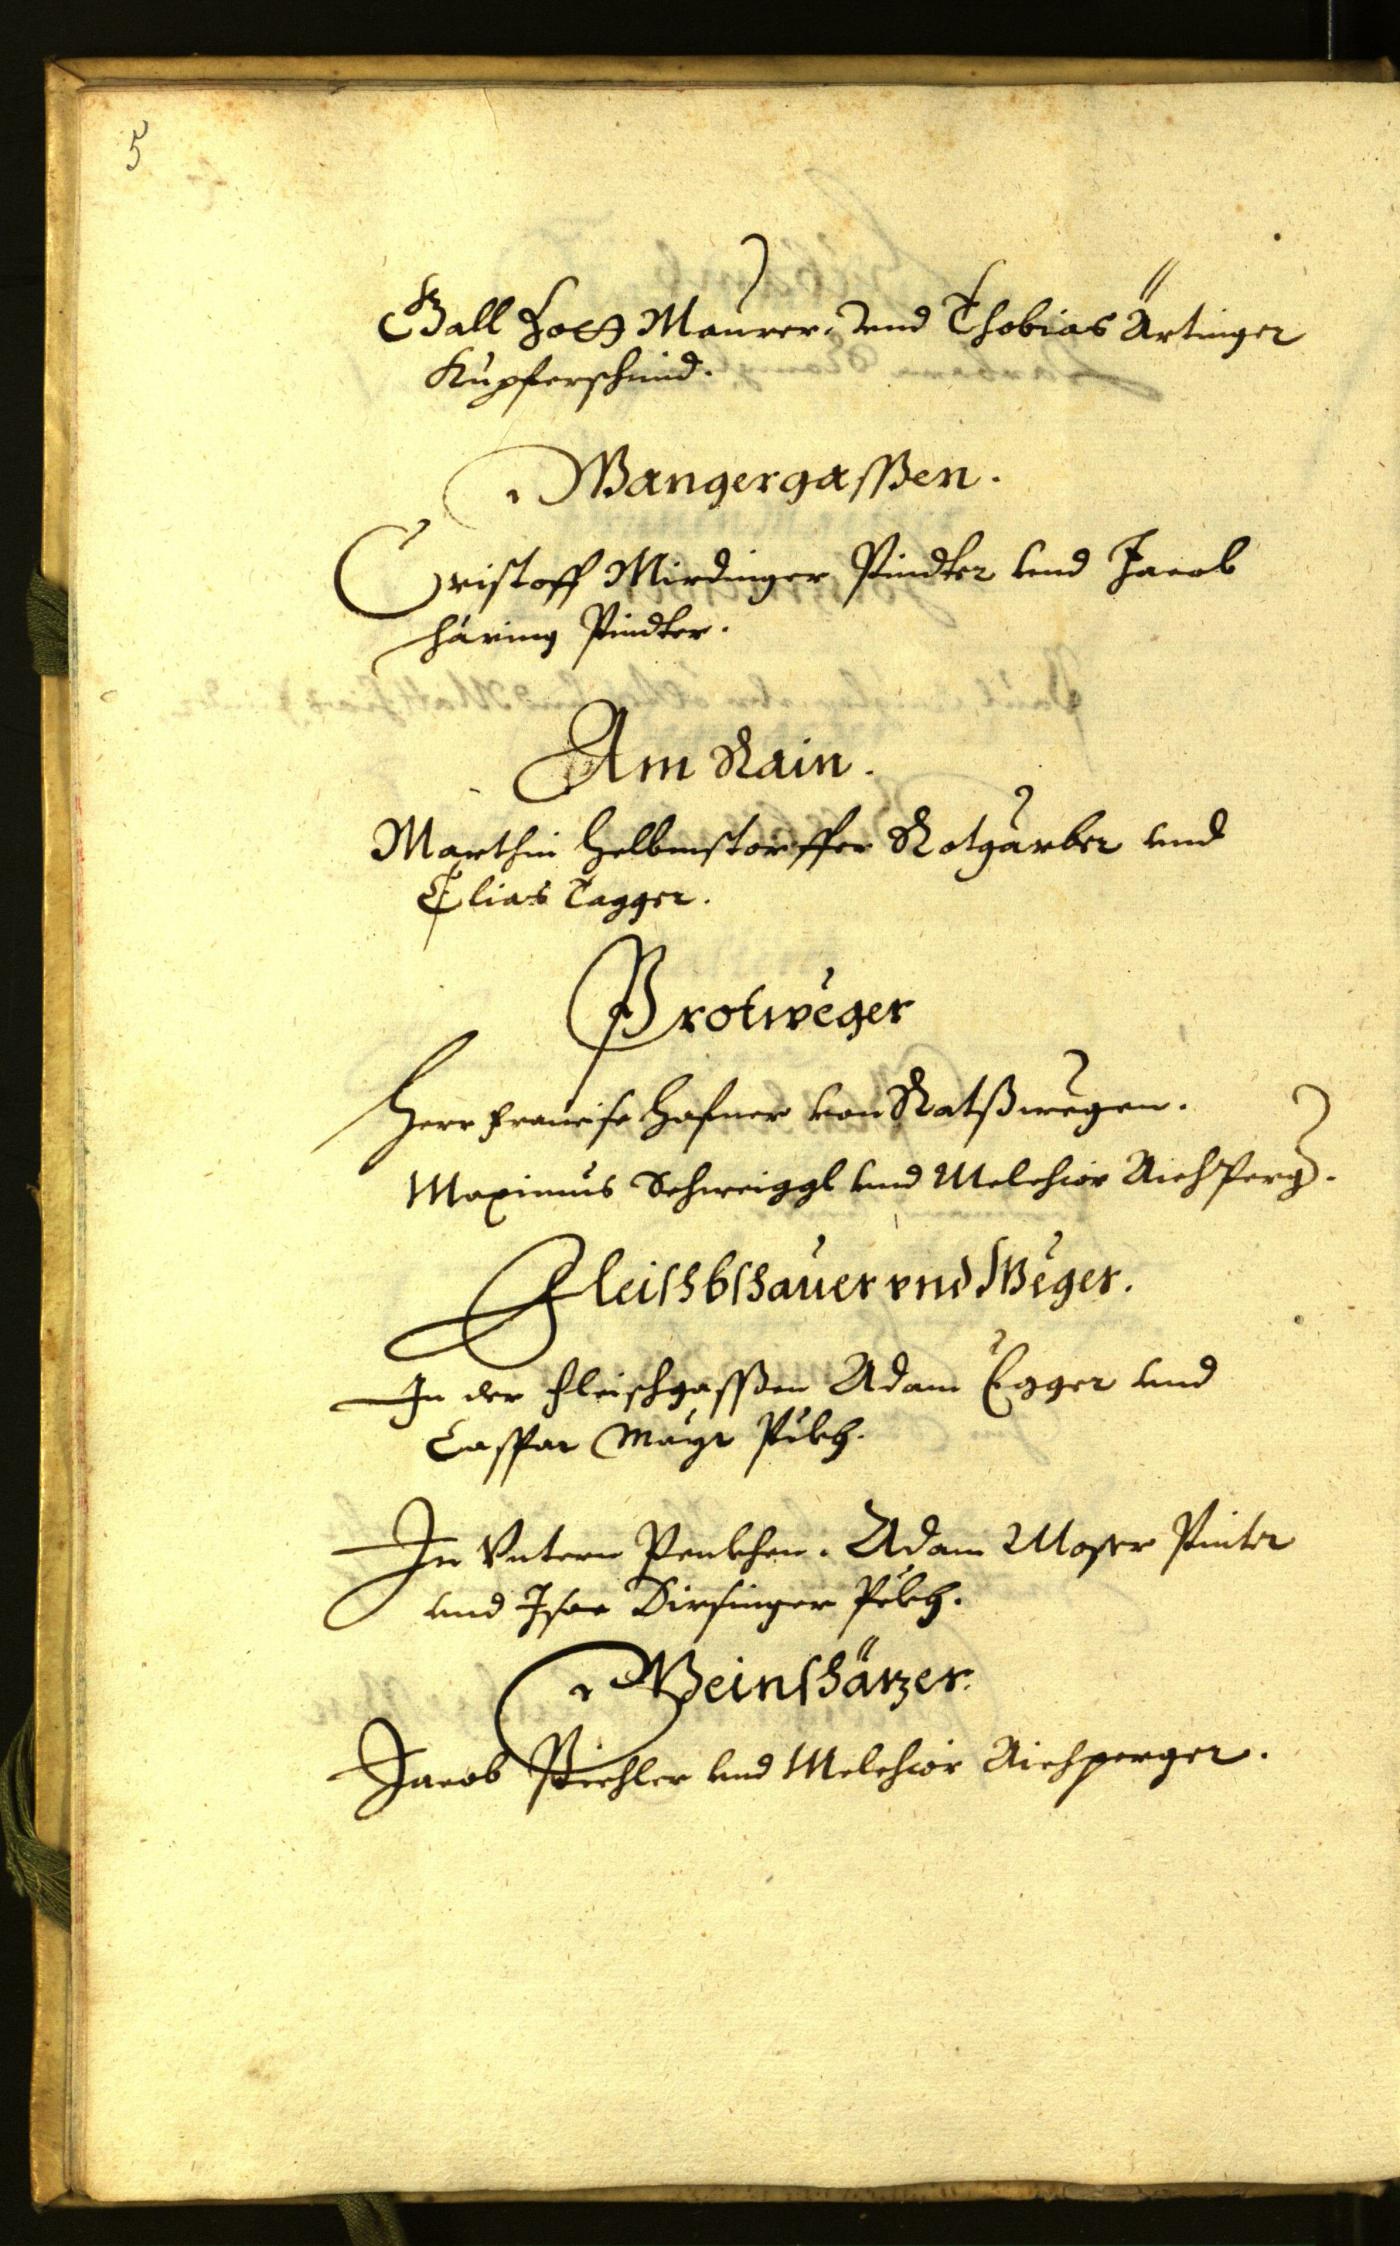 5
Gall Hoch Maurer, vnd Thobias Ärtinger
Kupferschmid.
Wangergaßen.
Cristoff Mirdinger Pindter vnd Jacob
Häring Pindter.
Am Rain.
Marthin Helbmstorffer Rotgärber vnd
Elias Tagger.
Brotweger
Herr Francisc Hafner von Ratßwegen.
Maximus Schweiggl vnd Melchior AichPerg.
Fleischbschauer vnd Weger.
In der Fleischgaßen Adam Egger vnd
Caspar Mayr
In Vntern Penkhen. Adam Moser Pinter
vnd Isac Dirsinger
Weinschäzer.
Jacob Pichler vnd Melchior Aichperger.